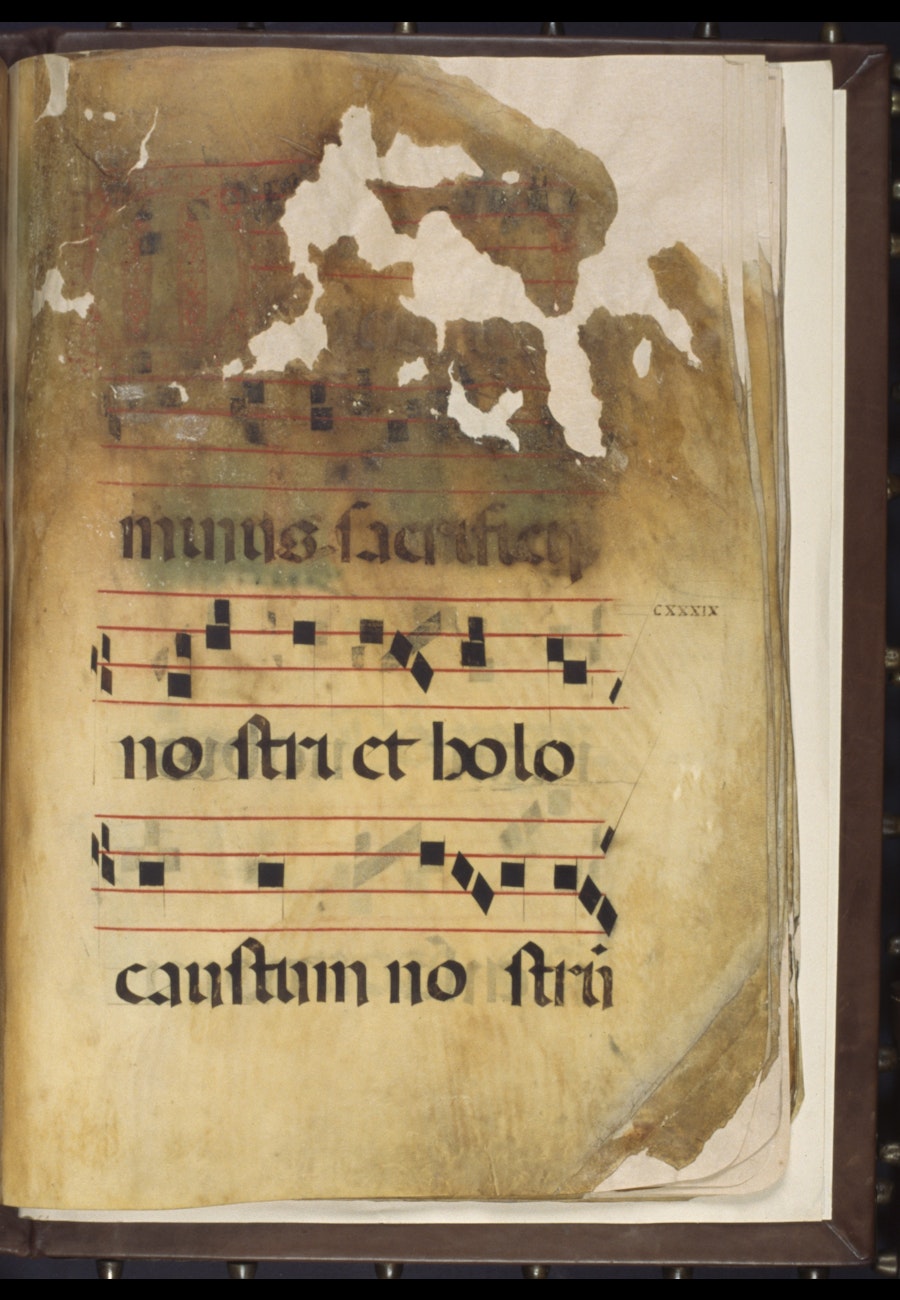 munus sacrificii
CXXXIX
no stri et holo
caustum no strū